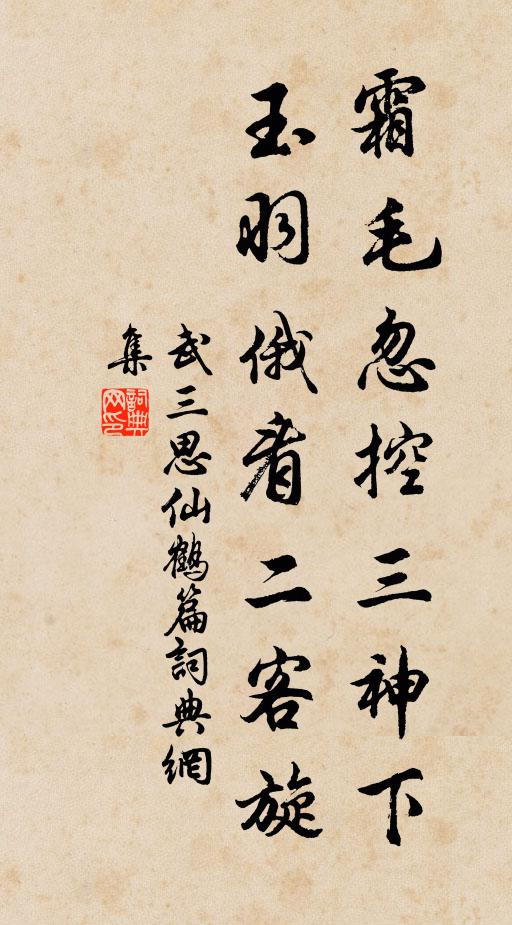 霜毛忽控三神下
玉羽俄看二客旋
武三思仙鶴篇詞典網
集
詞典網印